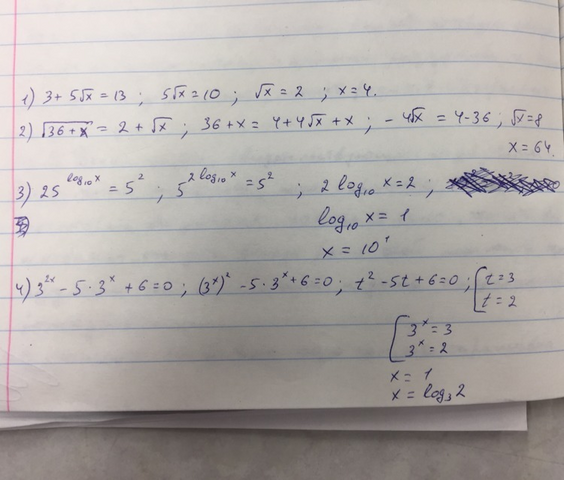 1) 3 + 5√x = 13 ; 5√x = 10 ; √x = 2 ; x = 4.
2) √(36 + x) = 2 + √x ; 36 + x = 4 + 4√x + x ; - 4√x = 4 - 36 ; √x = 8
x = 64.
3) 25^(log₁₀ x) = 5² ; 5^(2 log₁₀ x) = 5² ; 2 log₁₀ x = 2 ;
log₁₀ x = 1
x = 10¹
4) 3^(2x) - 5 · 3^x + 6 = 0 ; (3^x)² - 5 · 3^x + 6 = 0 ; t² - 5t + 6 = 0 ; [ t = 3
t = 2
[ 3^x = 3
3^x = 2
x = 1
x = log₃ 2